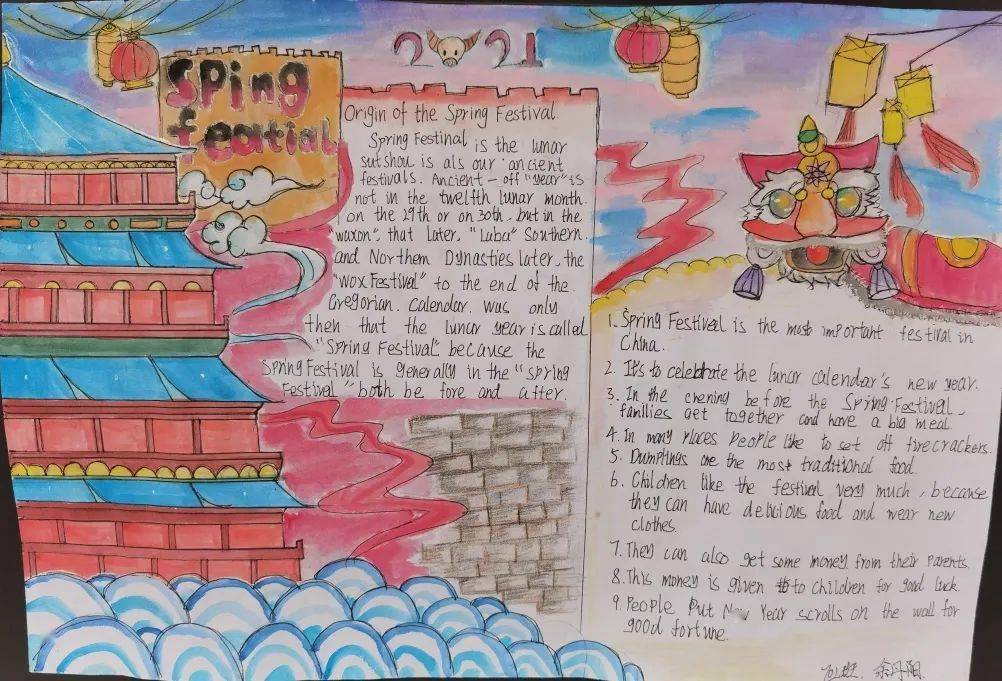 2021
Sping
featial
Origin of the Spring Festival
Spring Festinal is the lunar
sutshou is als our ancient
festivals. Ancient - off "year" is
not in the twelfth lunar month
on the 29th or on 30th, but in the
"waxon", that later, "Luba" Southern
and Northem Dynasties later, the
"wox Festival" to the end of the
Gregorian. Calendar was only
then that the lunar year is called
"Spring Festival" because the
Spring Festival is generally in the "spring
Festival" both be fore and after.
1. Spring Festival is the most important festival in
China.
2. It's to celebrate the lunar calendar's new year.
3. In the evening before the Spring Festival,
families get together and have a big meal.
4. In many places people like to set off firecrackers.
5. Dumplings are the most traditional food.
6. Children like the festival very much, because
they can have delicious food and wear new
clothes.
7. They can also get some money from their parents.
8. This money is given to children for good luck.
9. People put New Year scrolls on the wall for
good fortune.
701班 余丹阳